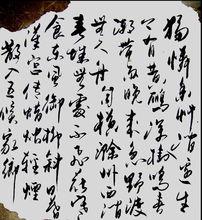 獨憐幽草澗邊生
上有黃鸝深樹鳴春
潮帶雨晚來急野渡
無人舟自橫滁州西澗
春城無處不飛花寒
食東風御柳斜日暮
漢宮傳蠟燭輕煙
散入五侯家